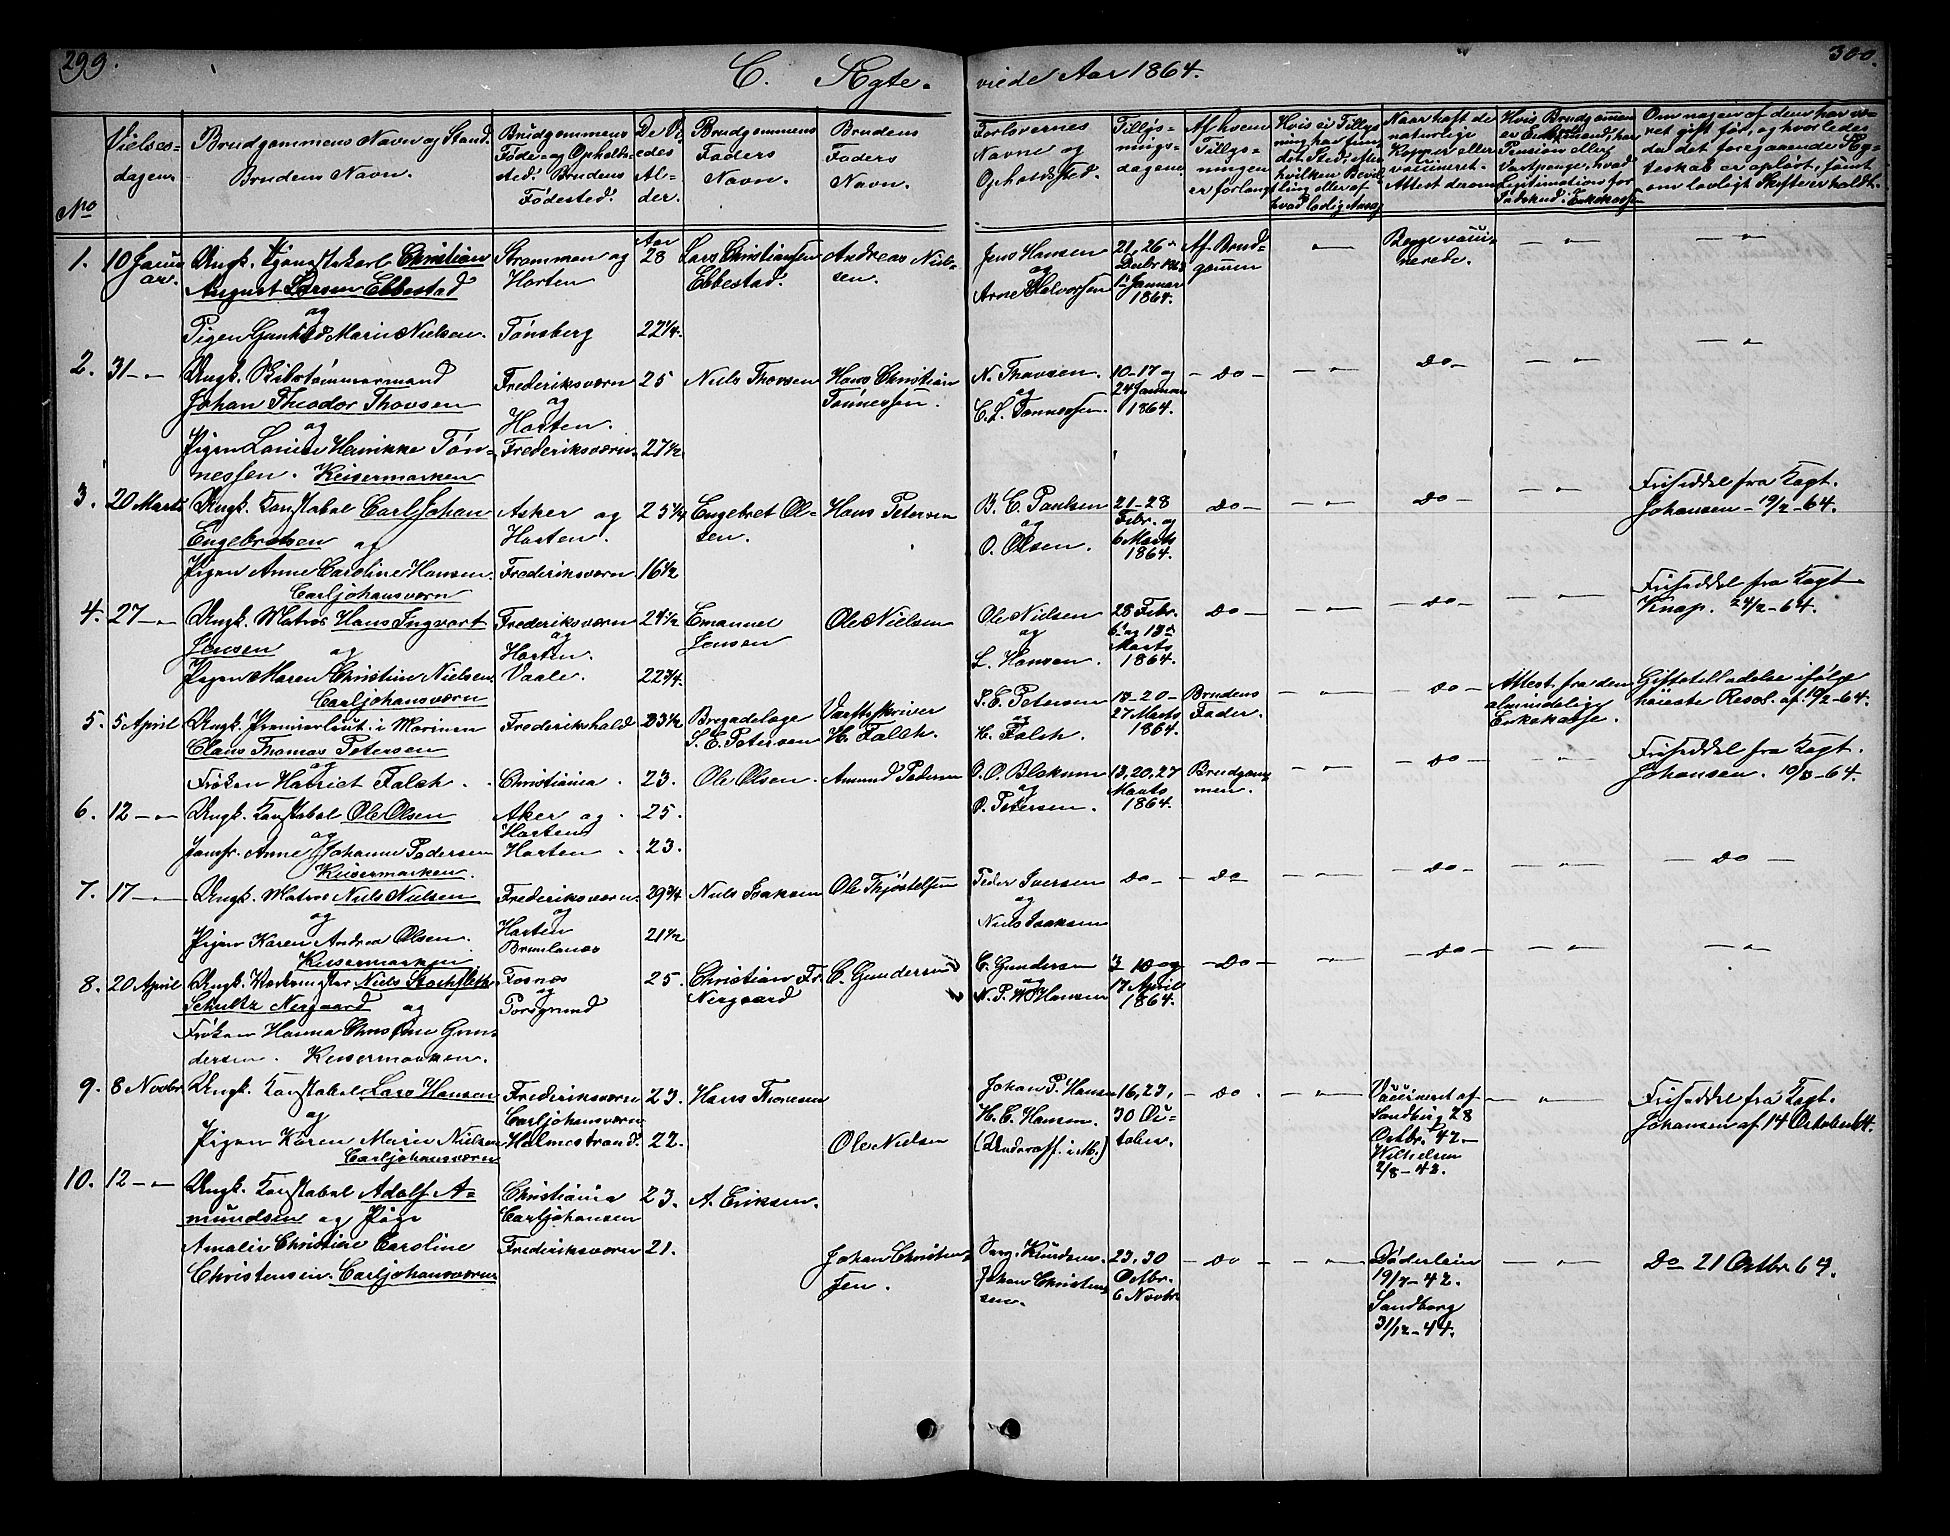 299.
C. Ægte-
viede Aar 1864.
300.
No
Vielses-
dagen.
Brudgommens Navn og Stand.
Brudens Navn.
Brudgommens
Føde- og Opholds-
sted. Brudens
Fødested.
De Vi-
edes
Al-
der.
Brudgommens
Faders
Navn.
Brudens
Faders
Navn.
Forlovernes
Navne og
Opholdssted.
Tillys-
nings-
dagene
Af hvem
Tillys-
ningen
er forlangt
Hvis ei Tillys-
ning har fun-
det Sted, efter
hvilken Bevil-
ling eller af
hvad lovlig Aarsag
Naar haft de
naturlige
Kopper eller
vaccineret.
Attest derom
Hvis Brudgommen
er Enkemand, har
Pension eller
Vartpenge, hvad
Legitimation for
Indskud i Enkekassen
Om nogen af dem har væ-
ret gift før, og hvorledes
da det foregaaende Æg-
teskab er opløst, samt
om lovligt Skifte er holdt.
1.
10 Janu-
ar.
Ungk. Christian
August Larsen Ebbestad
og
Pigen Gunhild Marie Nielsen.
Strømmen og
Horten
Tønsberg
Aar
28
22¼.
Lars Christiansen
Ebbestad.
Andreas Niel-
sen.
Jens Hansen
og
Arne Halvorsen
21, 26
Decbr 1863
1 Januar
1864.
Af Brud-
gommen
— " —
Begge vacci-
nerede.
— " —
— " —
2.
31 — " —
Ungk. Tømmermand
Johan Theodor Thovsen
og
Pigen Louise Henrikke Tøn-
nessen. Keisermarken
Frederiksværn
og
Horten.
Frederiksværn
25
27½
Niels Thovsen
Hans Christian
Tønnessen.
N. Thovsen.
og
C. L. Tønnessen.
10-17 og
24 Januar
1864.
— Do —
— " —
Do —
— " —
3.
20 Marts
Ungk. Konstabel Carl Johan
Engebretsen og
Pigen Anne Caroline Hansen.
Carljohansværn
Asker og
Horten.
Frederiksværn
25¼
16½
Engebret Ol-
sen.
Hans Petersen
B. C. Paulsen
og
O. Olsen.
21-28
Febr. og
6 Marts
1864.
Do —
— " —
Do —
— " —
Friseddel fra Kapt.
Johansen - 19/2 - 64.
4.
27 — " —
Ungk. Matros Hans Ingvart
Jensen og
Pigen Maren Christine Nielsen
Carljohansværn
Frederiksværn
og
Horten.
Vaale.
24½
22¾.
Emanuel
Jensen
Ole Nielsen
Ole Nielsen
og
L. Hansen.
28 Febr.
6 og 13
Marts
1864.
Do —
— " —
— Do —
— " —
Friseddel fra Kapt
Knap. 24/2 - 64.
5.
5 April
Ungk. Premierleut. i Marinen
Claus Thomas Petersen
og
Frøken Harriet Falch.
Frederikshald
Christiania.
33½
23.
Bregadelæge
S. E. Petersen
Værftsskriver
H. Falch.
S. E. Petersen
og
H. Falch.
13-20-
27 Marts
1864.
Brudens
Fader.
— " —
— Do —
Attest fra den
almindelige
Enkekasse.
Giftetilladelse ifølge
høieste Resol. af 19/2 - 64.
6.
12 — " —
Ungk. Konstabel Ole Olsen
og
Jomfr. Anne Johanne Pedersen
Keisermarken.
Aker og
Horten
Horten.
25.
23.
Ole Olsen.
Amund Pedersen
O. O. Blakum
og
O. Petersen.
13, 20, 27
Marts
1864.
Brudgom-
men.
— " —
— Do —
— " —
Friseddel fra Kapt.
Johansen. 10/3 - 64.
7.
17 — " —
Ungk. Matros Niels Nielsen
og
Pigen Karen Andrea Olsen.
Keisermarken
Frederiksværn
og
Horten
Brunlanæs
29¾
21½
Niels Isaksen
Ole Thjøstelsen
Peder Iversen
og
Niels Isaksen
Do —
— Do —
— " —
— Do —
— " —
— Do —
8.
20 April
Ungk. Niels Stockfleth
Schultz Nergaard og
Frøken Hanna Christine Gun-
dersen. Keisermarken.
Fosnæs
og
Porsgrund
25.
Christian Fr.
Nergaard
C. Gundersen
C. Gundersen
og
N. P. W. Hansen
3 10 og
17 April
1864.
— Do —
— " —
— Do —
— " —
— " —
9.
8 Novbr
Ungk. Konstabel Lars Hansen
og
Pigen Karen Marie Nielsen
Carljohansværn
Frederiksværn
Carljohansværn
Holmestrand.
23.
22.
Hans Thoresen
Ole Nielsen
Johan P. Hansen
H. C. Hansen.
(Underoff. i M.)
16, 23,
30 Oc-
tober.
— Do.
— " —
Vaccineret af
Sandberg 28
Octbr. 42 -
Wilhelsen
2/8 - 42.
— " —
Friseddel fra Kapt.
Johansen af 14 October 64.
10.
12 — " —
Ungk. Konstabel Adolf A-
mundsen og Pige
Amalie Christine Caroline
Christensen. Carljohansværn
Christiania
Carljohansværn
Frederiksværn
23.
21.
A. Eriksen.
Johan Christen-
sen.
Serg. Knudsen.
Johan Christen-
sen.
23, 30
Octbr.
6 Novbr
— Do
— " —
Døderlein
19/7 - 42.
Sandberg
31/12 - 44.
— " —
Do 21 Octbr. 64.